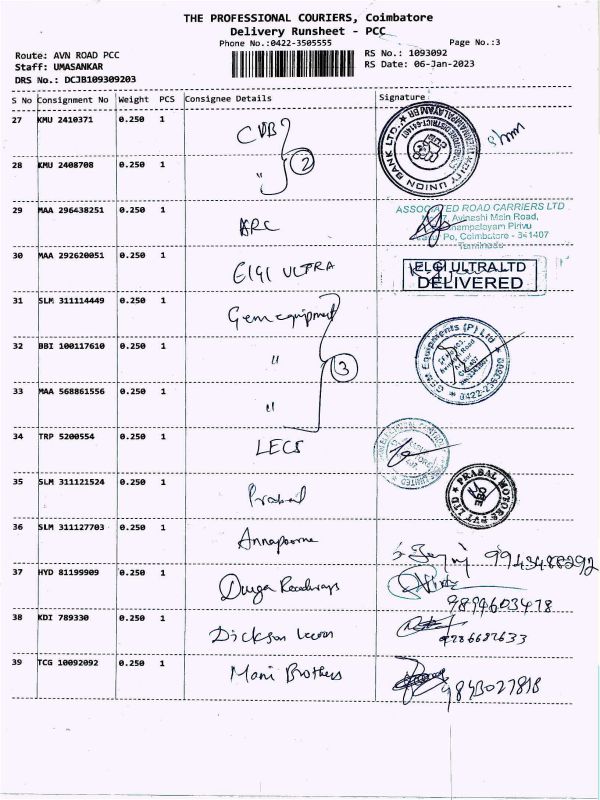 THE PROFESSIONAL COURIERS, Coimbatore
Delivery Runsheet - PCC
Phone No.:0422-3505555
Page No.:3
Route: AVN ROAD PCC
RS No.: 1093092
Staff: UMASANKAR
RS Date: 06-Jan-2023
DRS No.: DCJB109309203
S No Consignment No Weight PCS Consignee Details Signature
27 KMU 2410371 0.250 1 CUB
28 KMU 2408708 0.250 1 " 2
UNION BANK LTD.
29 MAA 296438251 0.250 1 ARC
ASSOCIATED ROAD CARRIERS LTD
Avinashi Main Road,
Pirivu
Po, Coimbatore - 641407
Tamilnadu
30 MAA 292620051 0.250 1 ElGI ULTRA
ELGI ULTRA LTD
DELIVERED
31 SLM 311114449 0.250 1 Gem equipment
32 BBI 100117610 0.250 1 "
33 MAA 568861556 0.250 1 " 3
GEM Equipments (P) Ltd
0422-2363800
34 TRP 5200554 0.250 1 LECS
35 SLM 311121524 0.250 1 Prabal
PRABAL MOTORS PVT LTD
CBE
36 SLM 311127703 0.250 1 Annapoorna
9943488292
37 HYD 81199909 0.250 1 Durga Roadways
9894603478
38 KDI 789330 0.250 1 Dickson
39 TCG 10092092 0.250 1 Mani Brothers
9843027818